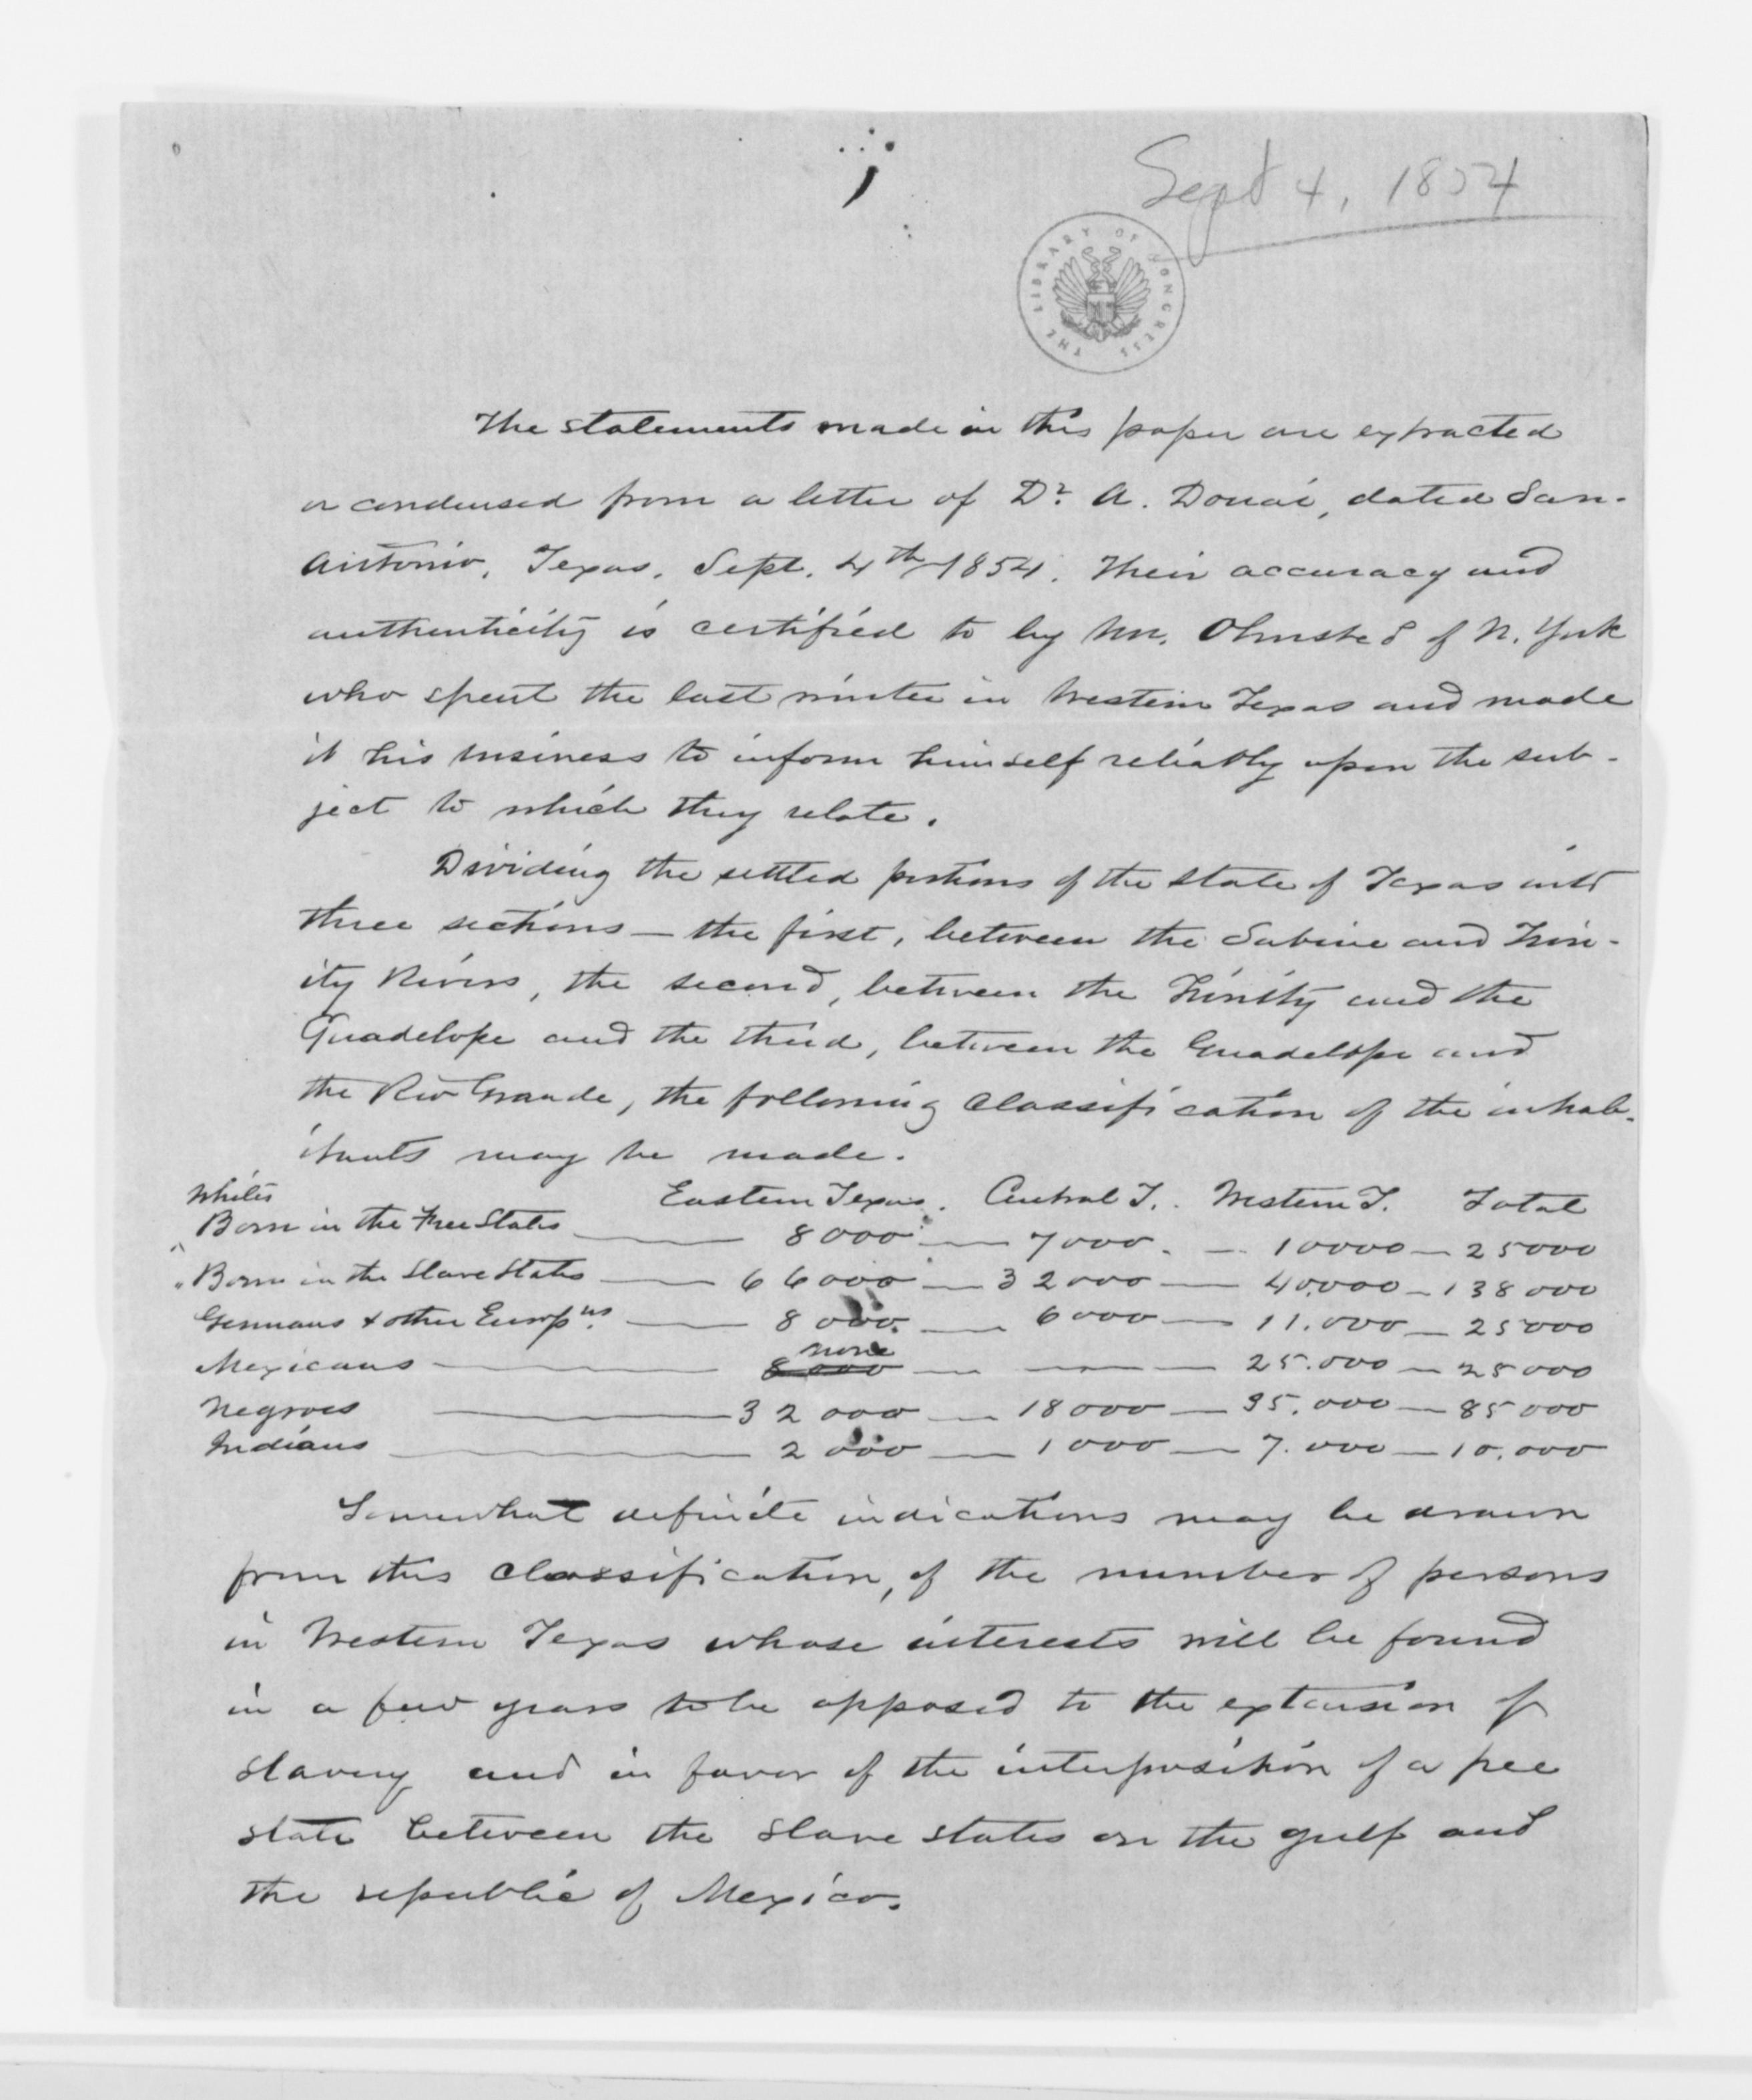 Sept 4, 1854
THE LIBRARY OF CONGRESS
The statements made in this paper are extracted
or condensed from a letter of Dr. A. Douai, dated San-
Antonio, Texas, Sept. 4th 1854. Their accuracy and
authenticity is certified to by Mr. Olmsted of N. York
who spent the last winter in Western Texas and made
it his business to inform himself reliably upon the sub-
ject to which they relate.
Dividing the settled portions of the State of Texas into
three sections — the first, between the Sabine and Trin-
ity Rivers, the second, between the Trinity and the
Guadelope and the third, between the Guadelope and
the Rio Grande, the following classification of the inhab-
itants may be made.
Whites Eastern Texas. Central T. Western T. Total
Born in the Free States — 8000 — 7000. — 10000 — 25000
" Born in the Slave States — 66000 — 32000 — 40.000 — 138000
Germans & other Europns. — 8000. — 6000 — 11.000 — 25000
none
Mexicans — 8000 — — 25.000 — 25000
Negroes — 32000 — 18000 — 35.000 — 85000
Indians — 2000 — 1000 — 7.000 — 10.000
Somewhat definite indications may be drawn
from this classification, of the number of persons
in Western Texas whose interests will be found
in a few years to be opposed to the extension of
slavery and in favor of the interposition of a free
state between the slave states on the gulf and
the republic of Mexico.